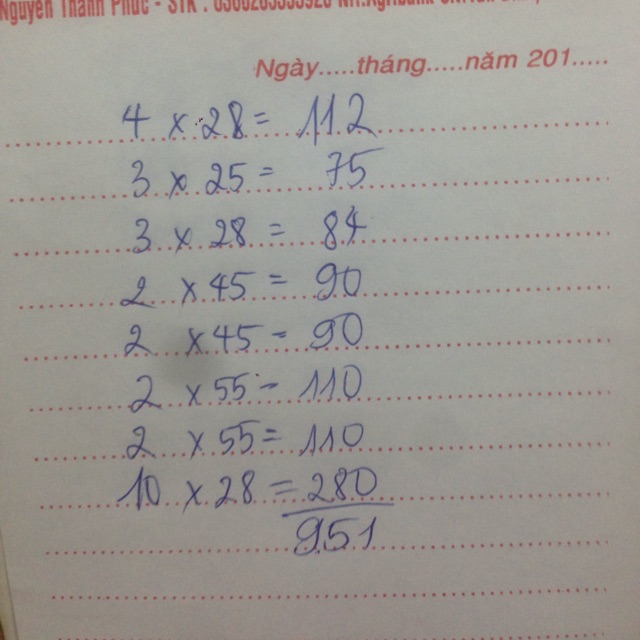 Nguyễn Thanh Phúc - STK :
Ngày.....tháng.....năm 201.....
4 x 28 = 112
3 x 25 = 75
3 x 28 = 84
2 x 45 = 90
2 x 45 = 90
2 x 55 = 110
2 x 55 = 110
10 x 28 = 280
951